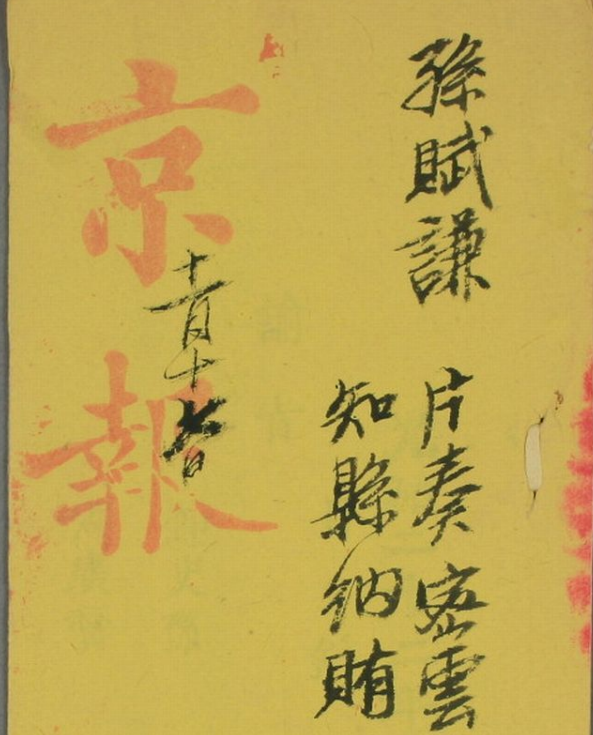 孫賦謙
片奏密雲
知縣納賄
京報
十一月十七日